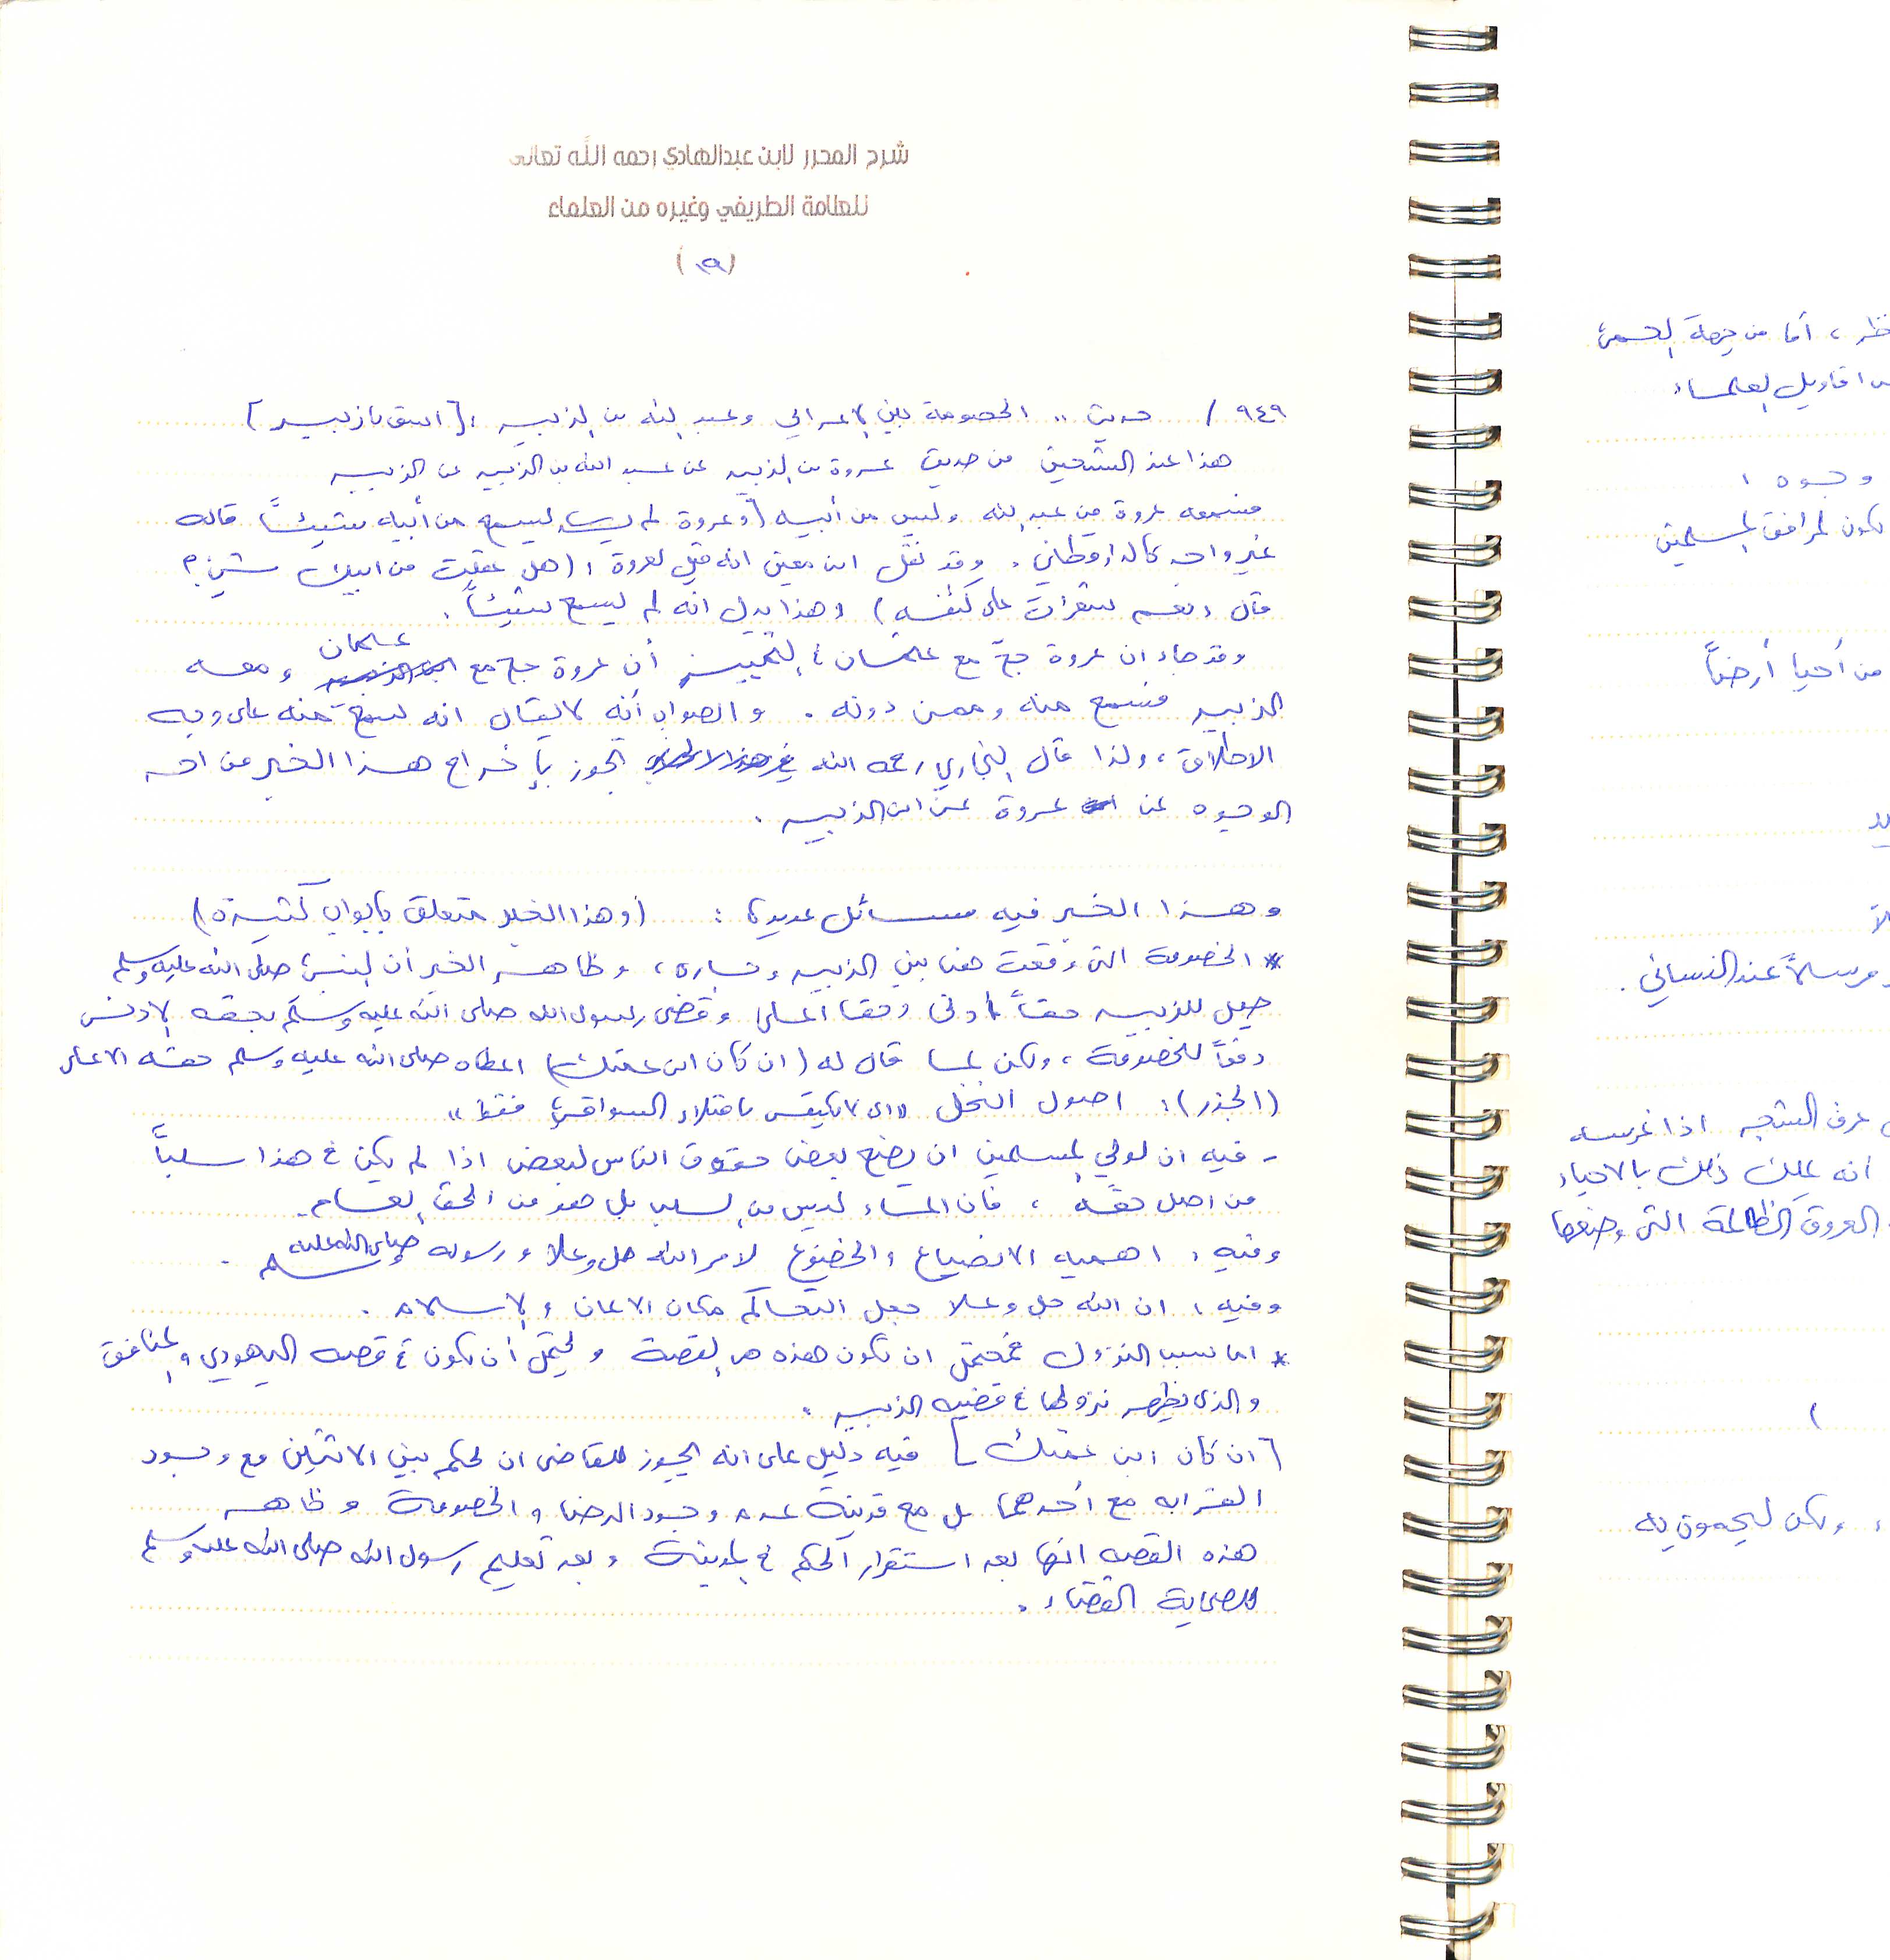 شرح المحرر لابن عبدالهادي رحمه الله تعالى
للعلامة الطريفي وغيره من العلماء
(١٩)
٩٤٩ / حديث .. الخصومة بين الاعرابي وعبد الله بن الزبير : [اسق يا زبير]
هذا عند الشيخين من حديث عروة بن الزبير عن عبد الله بن الزبير عن الزبير
فسمعه عروة من عبد الله وليس من أبيه [وعروة لم يسمع من أبيه شيئاً قاله
غير واحد كالدارقطني . وقد نقل ابن معين انه قيل لعروة : (هل عقلت من ابيك شيء ؟
قال : نعم شعرات على كتفه) وهذا يدل انه لم يسمع شيئاً .
وقد جاء ان عروة حج مع عثمان ؛ التمييز أن عروة حج مع عثمان ومعه
الزبير فسمع منه وممن دونه . والصواب أنه لا يقال انه سمع منه على وجه
الاطلاق ، ولذا قال البخاري رحمه الله تجوز بإخراج هذا الخبر من احد
الوجوه عن عروة عن ابن الزبير .
وهذا الخبر فيه مسائل عديدة : (وهذا الخبر متعلق بابواب كثيرة)
* الخصومة التي وقعت هنا بين الزبير وجاره ، وظاهر الخبر أن النبي صلى الله عليه وسلم
جعل للزبير حقاً ادنى وحقا اعلى وقضى رسول الله صلى الله عليه وسلم بحقه الادنى
دفعاً للخصومة ، ولكن لما قال له (ان كان ابن عمتك) اعطاه صلى الله عليه وسلم حقه الاعلى
(الجذر) : اصول النخل "اى لا يكتفى بامتلاء السواقي فقط"
- فيه ان لولي المسلمين ان يضع بعض حقوق الناس لبعض اذا لم يكن في هذا سلباً
من اصل حقه ، فان الماء ليس من السلب بل هو من الحق العام .
وفيه : اهمية الانصياع والخضوع لامر الله جل وعلا ورسوله صلى الله عليه وسلم .
وفيه : ان الله جل وعلا جعل التحاكم مكان الايمان والاسلام .
* اما سبب النزول فمحتمل ان تكون هذه هي القصة ويحتمل أن تكون في قصه اليهودي والمنافق
والذى يظهر نزولها في قضيه الزبير .
[ان كان ابن عمتك] فيه دليل على انه يجوز للقاضى ان يحكم بين الاثنين مع وجود
القرابه مع أحدهما بل مع قرينة عدم وجود الرضا والخصومة وظاهر
هذه القصه انها بعد استقرار الحكم في المدينة وبعد تعليم رسول الله صلى الله عليه وسلم
للصحابة القضاء .
أما من جهة المعنى
اقاويل العلماء
وجوه :
تكون لمرافق المسلمين
من أحيا أرضاً
مرسلاً عند النسائي .
عرق الشجر اذا غرسه
انه يملك ذلك بالاحياء
العروق الظالمة التي وضعها
ولكن ليحمون به